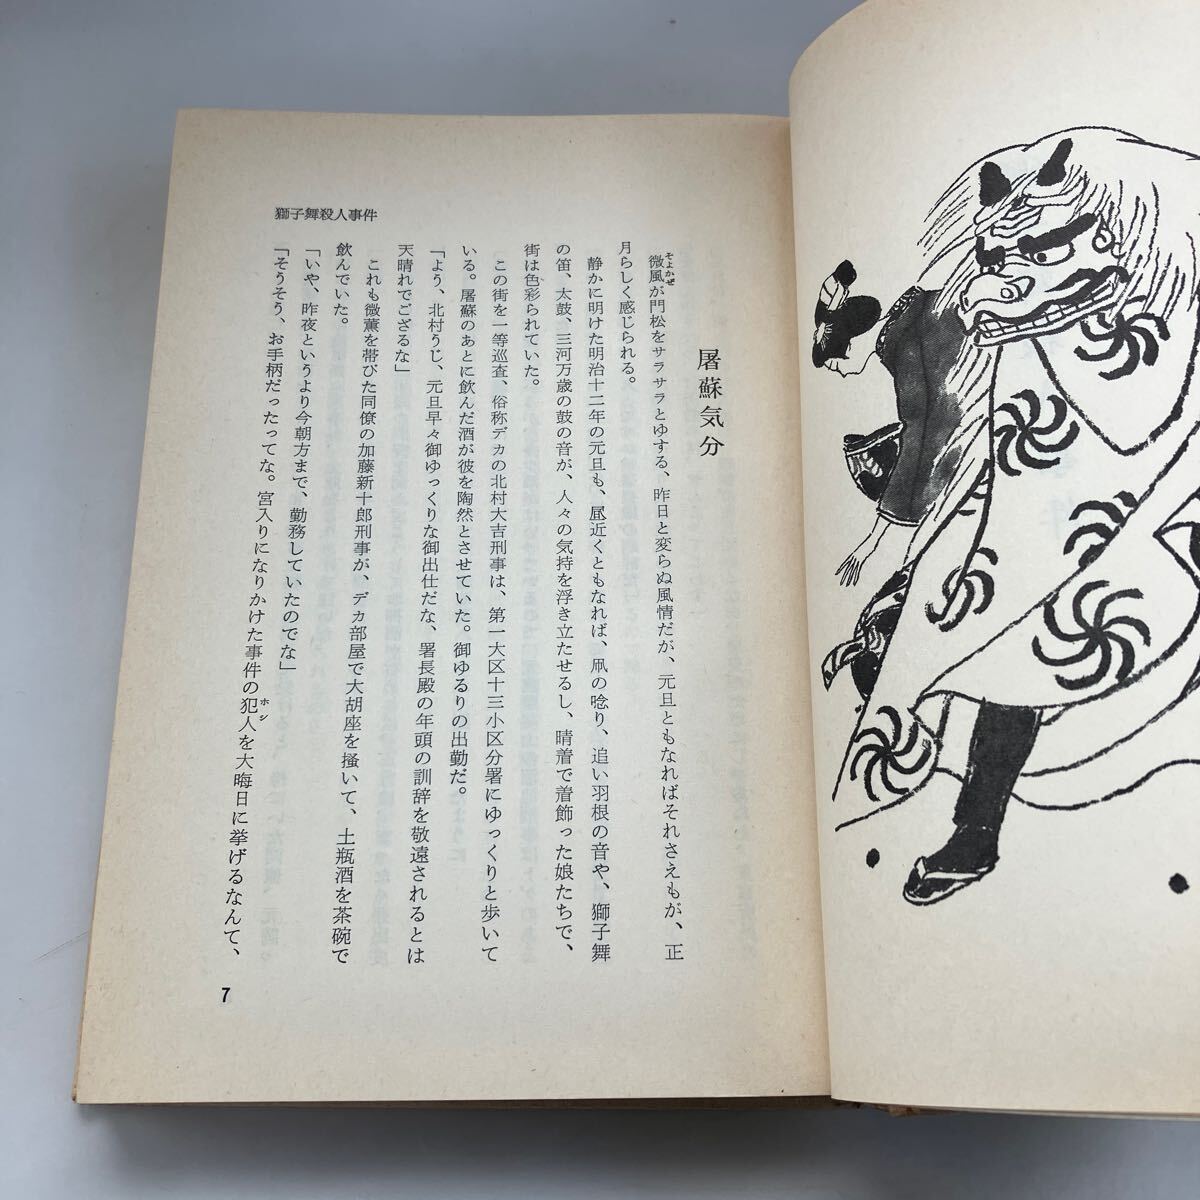 獅子舞殺人事件
屠蘇気分
そよかぜ
微風が門松をサラサラとゆする、昨日と変らぬ風情だが、元旦ともなればそれさえもが、正
月らしく感じられる。
静かに明けた明治十二年の元旦も、昼近くともなれば、凧の唸り、追い羽根の音や、獅子舞
の笛、太鼓、三河万歳の鼓の音が、人々の気持を浮き立たせるし、晴着で着飾った娘たちで、
街は色彩られていた。
この街を一等巡査、俗称デカの北村大吉刑事は、第一大区十三小区分署にゆっくりと歩いて
いる。屠蘇のあとに飲んだ酒が彼を陶然とさせていた。御ゆるりの出勤だ。
「よう、北村うじ、元旦早々御ゆっくりな御出仕だな、署長殿の年頭の訓辞を敬遠されるとは
天晴れでござるな」
これも微薫を帯びた同僚の加藤新十郎刑事が、デカ部屋で大胡座を掻いて、土瓶酒を茶碗で
飲んでいた。
「いや、昨夜というより今朝方まで、勤務していたのでな」
「そうそう、お手柄だったってな。宮入りになりかけた事件の犯人を大晦日に挙げるなんて、
ホシ
7